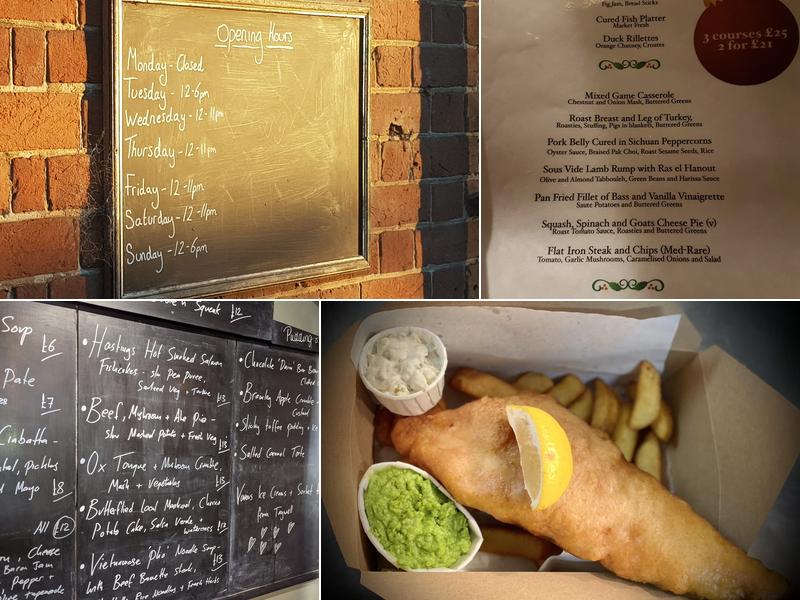 Opening Hours
Monday - Closed
Tuesday - 12-6pm
Wednesday - 12-11pm
Thursday - 12-11pm
Friday - 12-11pm
Saturday - 12-11pm
Sunday - 12-6pm
Fig Jam, Bread Sticks
Cured Fish Platter
Market Fresh
Duck Rillettes
Orange Chutney, Croutes
3 courses £25
2 for £21
Mixed Game Casserole
Chestnut and Onion Mash, Buttered Greens
Roast Breast and Leg of Turkey,
Roasties, Stuffing, Pigs in blankets, Buttered Greens
Pork Belly Cured in Sichuan Peppercorns
Oyster Sauce, Braised Pak Choi, Roast Sesame Seeds, Rice
Sous Vide Lamb Rump with Ras el Hanout
Olive and Almond Tabbouleh, Green Beans and Harissa Sauce
Pan Fried Fillet of Bass and Vanilla Vinaigrette
Saute Potatoes and Buttered Greens
Squash, Spinach and Goats Cheese Pie (v)
Roast Tomato Sauce, Roasties and Buttered Greens
Flat Iron Steak and Chips (Med-Rare)
Tomato, Garlic Mushrooms, Caramelised Onions and Salad
Squeak £12
Soup
£6
Pate
£7
Ciabatta -
Pickles
Mayo £8
All £12
Cheese
Bacon Jam
Pepper +
tapenade
• Hastings Hot Smoked Salmon
Fishcakes - Pea Puree,
Sauteed Veg + Tartare £13
• Beef, Mushroom + Ale Pie -
Mashed Potato + Fresh Veg £13
• Ox Tongue + Mushroom Crumble,
Mash + Vegetables £13
• Butterflied Local Mackerel, Chorizo
Potato Cake, Salsa Verde +
watercress £13
• Vietnamese 'Pho' Noodle Soup -
with Beef Bavette Steak, £13
Rice Noodles + Fresh Herbs
Puddings
• Chocolate
• Bramley Apple Crumble -
Custard
• Sticky toffee pudding +
• Salted Caramel Tarte
Various Ice Creams + Sorbet
from Taywell